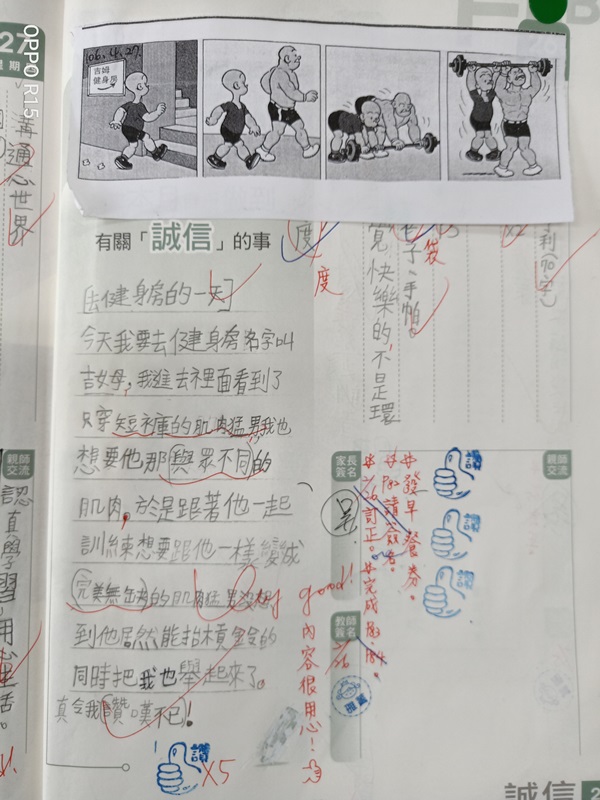 OPPO R15
27
星期
106.4.27.
吉姆
健身房
有關「誠信」的事
[去健身房的一天]
今天我要去健身房名字叫
吉姆,我進去裡面看到了
只穿短褲的肌肉猛男我也
想要他那與眾不同的
肌肉。於是跟著他一起
訓練想要跟他一樣變成
完美無缺的肌肉猛男沒想
到他居然能抬槓鈴的
同時把我也舉起來了。
真令我讚嘆不已!
讚
X5
Very good!
內容很用心!
溝通心世界
度
度
子、手帕。
袋
覺快樂的,不是環
利(70字)
家長
簽名
親師
交流
發早餐券。
訂正。
完成
讚
讚
讚
教師
簽名
親師
交流
認真學習,用
生活。
誠信 2